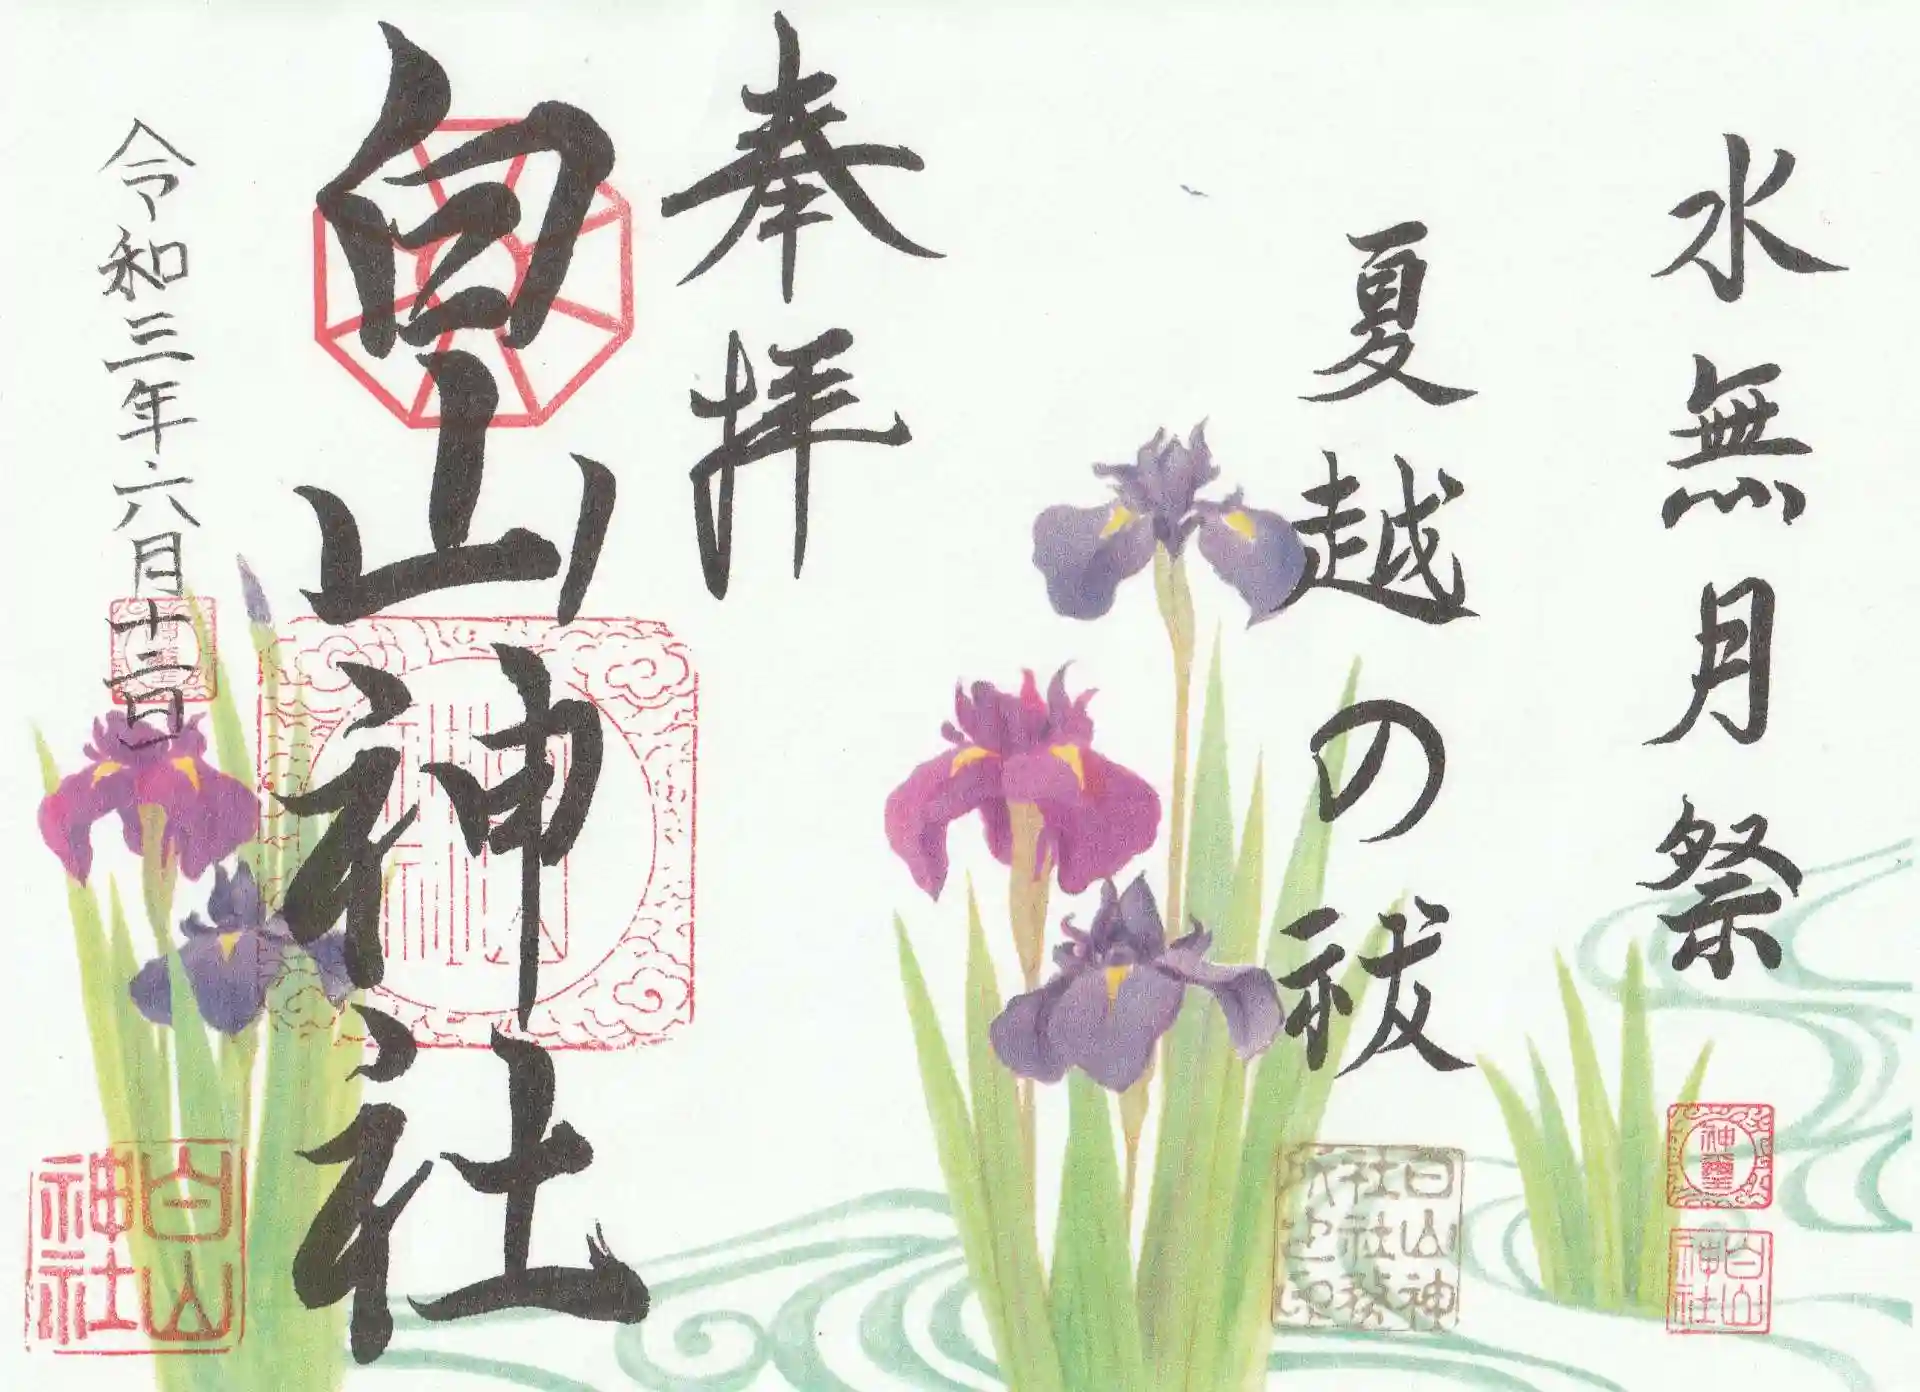 水無月祭
夏越の祓
奉拝
白山神社
令和三年六月十二日
神璽
白山
神社
白山神
社社務
所之印
白山
神社